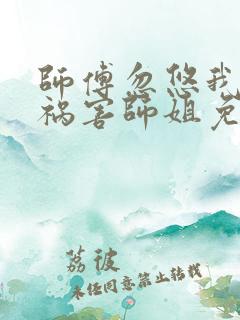 師傅忽悠我
祸害師姐免
荔彼
未经同意禁止转载